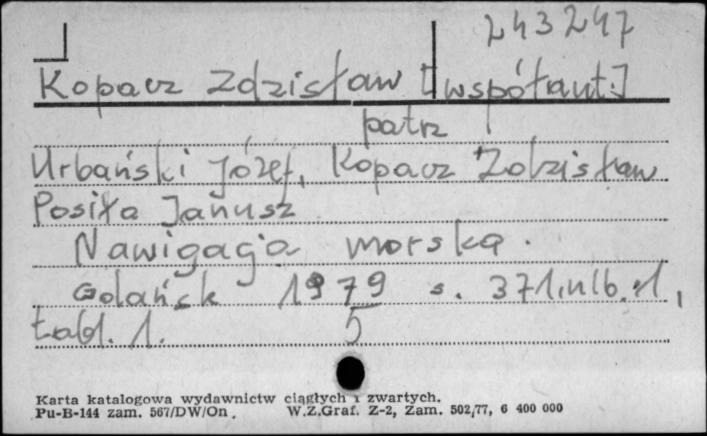 243247
Kopacz Zdzisław [współaut.]
patrz
Urbański Józef, Kopacz Zdzisław
Posiła Janusz
Nawigacja morska.
Gdańsk 1979 s. 371, nlb. 1,
tabl. 1. 5
Karta katalogowa wydawnictw ciągłych i zwartych.
Pu-B-144 zam. 567/DW/On. W.Z.Graf. Z-2, Zam. 502/77, 6 400 000